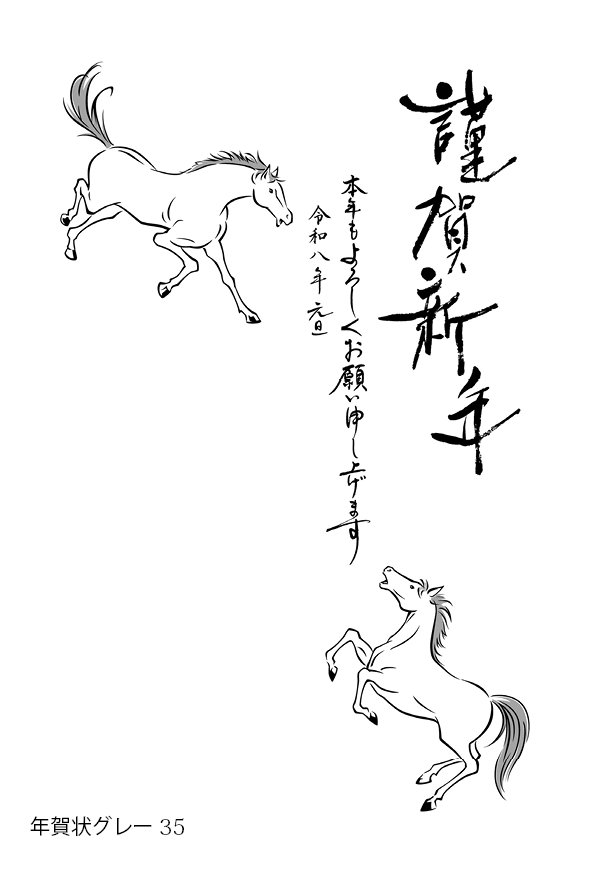 謹賀新年
本年もよろしくお願い申し上げます
令和八年 元旦
年賀状グレー 35